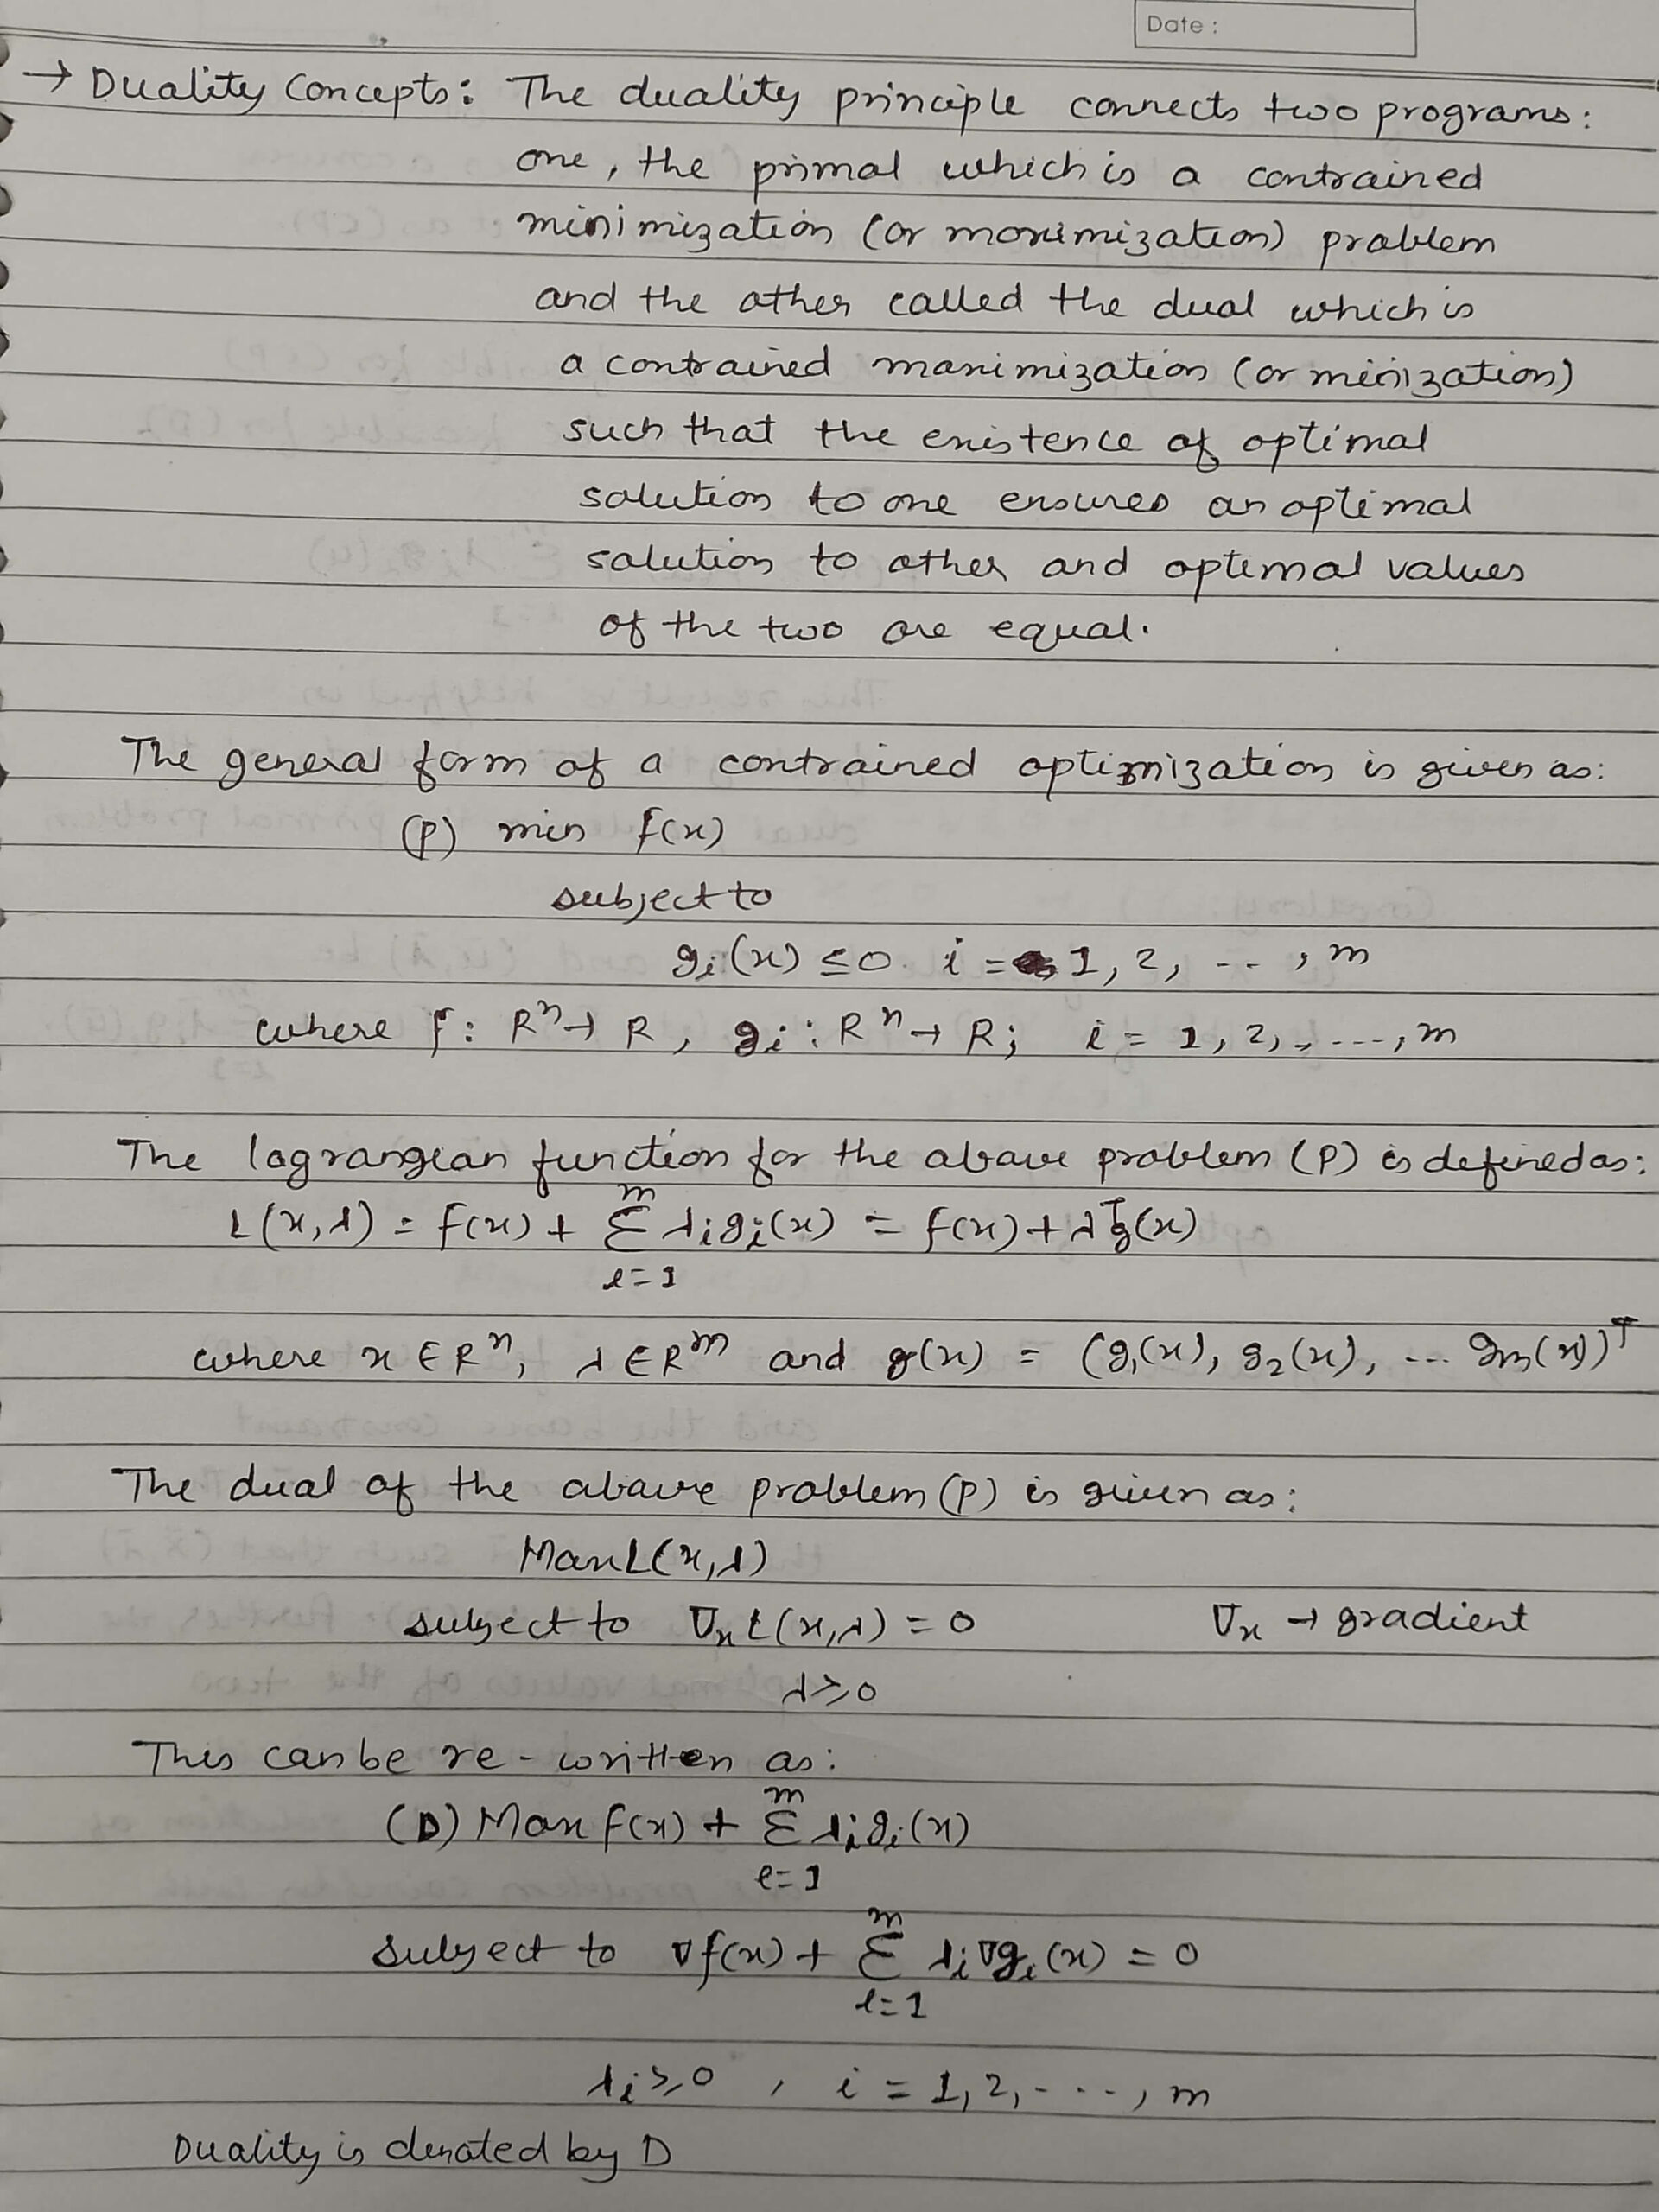 Date :
→ Duality Concepts: The duality principle connects two programs:
one, the primal which is a contrained
minimization (or maximization) problem
and the other called the dual which is
a contrained maximization (or minization)
such that the existence of optimal
solution to one ensures an optimal
solution to other and optimal values
of the two are equal.
The general form of a contrained optimization is given as:
(P) min f(x)
subject to
gᵢ(x) ≤ 0 i = 1, 2, ..., m
where f: Rⁿ → R, gᵢ: Rⁿ → R; i = 1, 2, , ..., m
The lagrangian function for the above problem (P) is defined as:
L(x, λ) = f(x) + m Σ i=1 λᵢgᵢ(x) = f(x) + λᵀg(x)
where x ∈ Rⁿ, λ ∈ Rᵐ and g(x) = (g₁(x), g₂(x), ... gₘ(x))ᵀ
The dual of the above problem (P) is given as:
Max L(x, λ)
subject to ∇ₓL(x, λ) = 0 ∇ₓ → gradient
λ ≥ 0
This can be re-written as:
(D) Max f(x) + m Σ i=1 λᵢgᵢ(x)
subject to ∇f(x) + m Σ i=1 λᵢ∇gᵢ(x) = 0
λᵢ ≥ 0 , i = 1, 2, ...., m
Duality is denoted by D